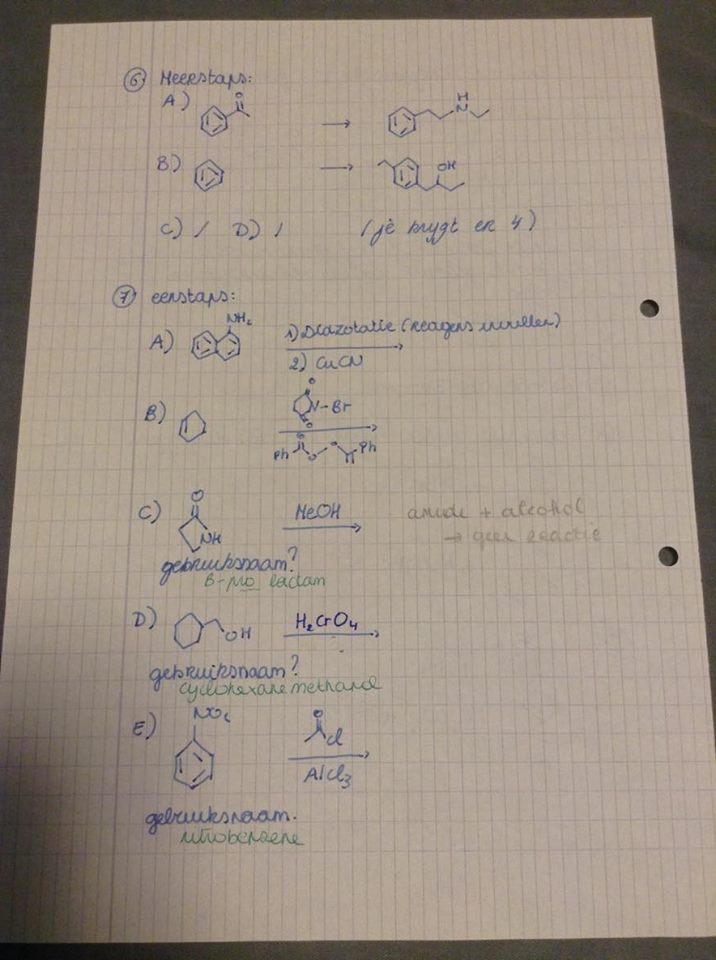 6 Meerstaps:
A) O → H N
B) → OH
C) / D) / (je krygt er 4)
7 eenstaps:
A) NH2 1) Diazotatie (reagens invullen)
2) CuCN
B) O N-Br O
Ph O O O O Ph
C) O NH MeOH amide + alcohol
→ geen reactie
gebruiksnaam?
B-pro lactam
D) OH H2CrO4
gebruiksnaam?
cyclohexanemethanol
E) NO2 O Cl
AlCl3
gebruiksnaam.
nitrobenzene